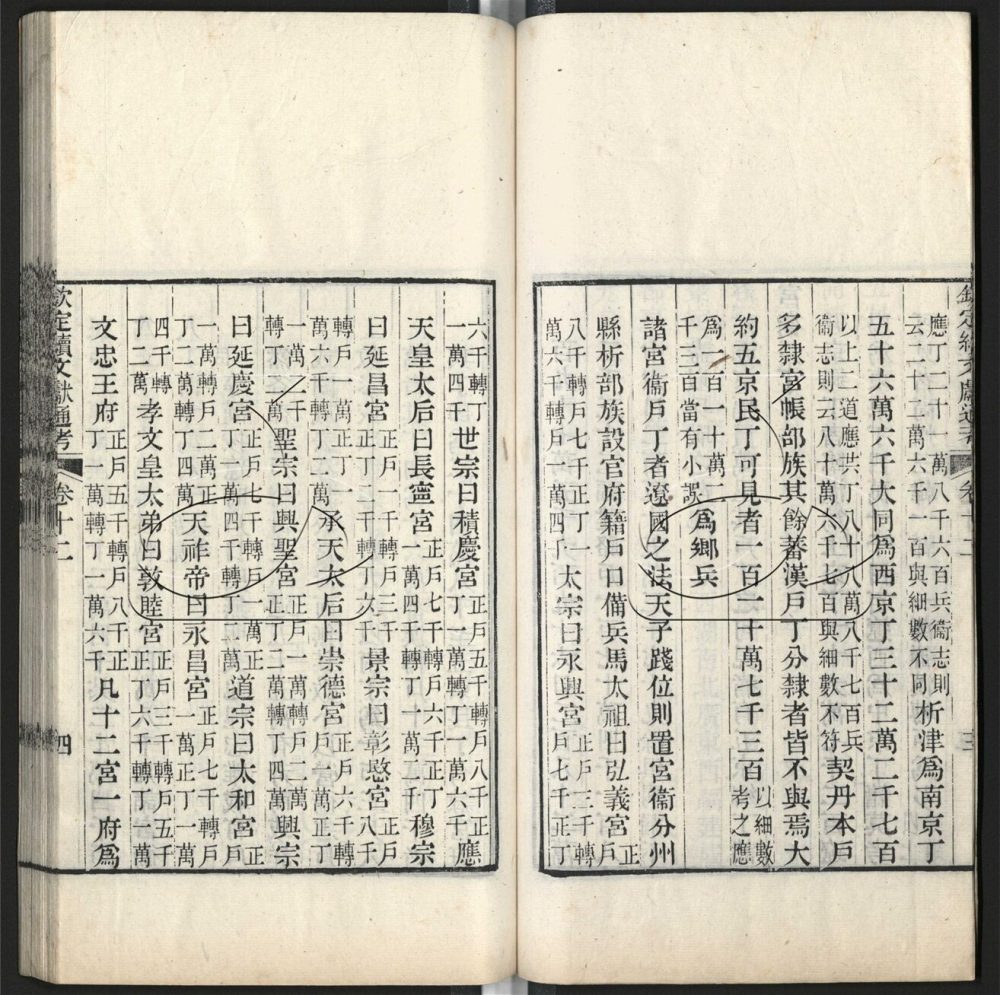 欽定續文獻通考 卷十二 三
應丁二十一萬八千六百兵衞志則
云二十二萬六千一百與細數不同
析津為南京丁
五十六萬六千大同為西京丁三十二萬二千七百
以上二道應共丁八十八萬八千七百兵
衞志則云八十萬六千七百與細數不符
契丹本戶
多隸宮帳部族其餘蕃漢戶丁分隸者皆不與焉大
約五京民丁可見者一百一十萬七千三百
以細數
考之應
為一百一十萬二
千三百當有小誤
為鄉兵
諸宮衞戶丁者遼國之法天子踐位則置宮衞分州
縣析部族設官府籍戶口備兵馬太祖曰弘義宮
正
戶
八千轉戶七千正丁一
萬六千轉丁一萬四千
太宗曰永興宮
正戶三千轉
戶七千正丁
六千轉丁
一萬四千
世宗曰積慶宮
正戶五千轉戶八千正
丁一萬轉丁一萬六千
應
天皇太后曰長寧宮
正戶七千轉戶六千正丁
一萬四千轉丁一萬二千
穆宗
曰延昌宮
正戶一千轉戶三千正
丁二千轉丁六千
景宗曰彰愍宮
正戶
八千
轉戶一萬正丁一
萬六千轉丁二萬
承天太后曰崇德宮
正戶六千轉
戶一萬正丁
一萬二千
轉丁二萬
聖宗曰興聖宮
正戶一萬轉戶二萬
正丁二萬轉丁四萬
興宗
曰延慶宮
正戶七千轉戶一萬正
丁一萬四千轉丁二萬
道宗曰太和宮
正
戶
一萬轉戶二萬正
丁二萬轉丁四萬
天祚帝曰永昌宮
正戶七千轉戶
一萬正丁一萬
四千轉
丁二萬
孝文皇太弟曰敦睦宮
正戶三千轉戶五千
正丁六千轉丁一萬
文忠王府
正戶五千轉戶八千正
丁一萬轉丁一萬六千
凡十二宮一府為
欽定續文獻通考 卷十二 四